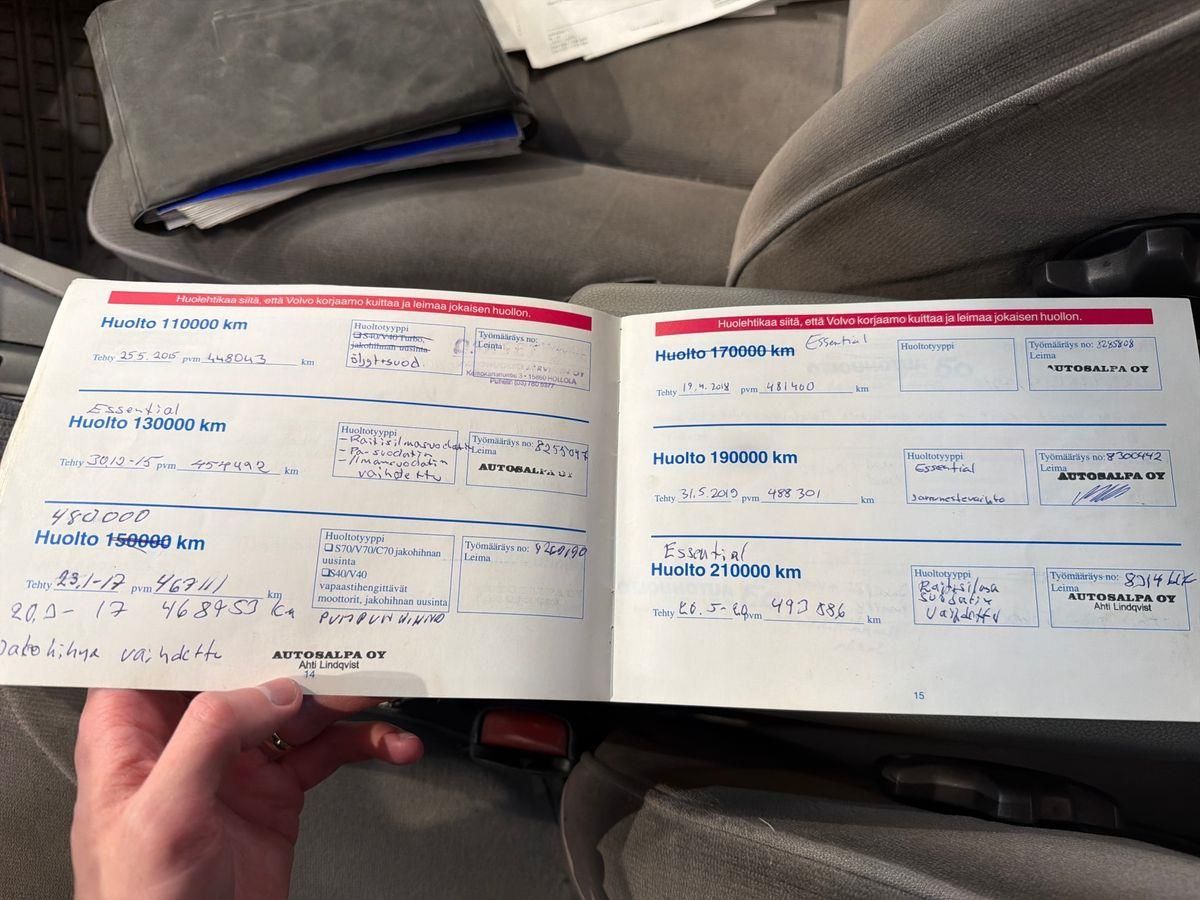 Huolehtikaa siitä, että Volvo korjaamo kuittaa ja leimaa jokaisen huollon.
Huolto 110000 km
Tehty 25.5. 2015 pvm 448043 km
Huoltotyyppi
❑ S40/V40 Turbo,
jakohihnan uusinta
öljyt+suod.
Työmääräys no:
Leima
15860 HOLLOLA
Essential
Huolto 130000 km
Tehty 30.12-15 pvm 454492 km
Huoltotyyppi
- Raitisilmasuodatin
- Pa-suodatin
- Ilmansuodatin
vaihdettu
Työmääräys no:
Leima
AUTOSALPA OY
480.000
Huolto 150000 km
Tehty 23.1-17 pvm 467111 km
20.3-17 468953 km
Jakohihna vaihdettu
Huoltotyyppi
❑ S70/V70/C70 jakohihnan
uusinta
❑ S40/V40
vapaastihengittävät
moottorit, jakohihnan uusinta
PUMPUN HIHNA
Työmääräys no:
Leima
AUTOSALPA OY
Ahti Lindqvist
14
Huolehtikaa siitä, että Volvo korjaamo kuittaa ja leimaa jokaisen huollon.
Huolto 170000 km Essential
Tehty 19.4. 2018 pvm 481400 km
Huoltotyyppi
Työmääräys no: 8285808
Leima
AUTOSALPA OY
Huolto 190000 km
Tehty 31.5.2019 pvm 488 301 km
Huoltotyyppi
Essential
Jarrunestevaihto
Työmääräys no: 8300442
Leima
AUTOSALPA OY
Essential
Huolto 210000 km
Tehty 26.5-20 pvm 493 886 km
Huoltotyyppi
Raitisilma
suodatin
vaihdettu
Työmääräys no:
Leima
AUTOSALPA OY
Ahti Lindqvist
15